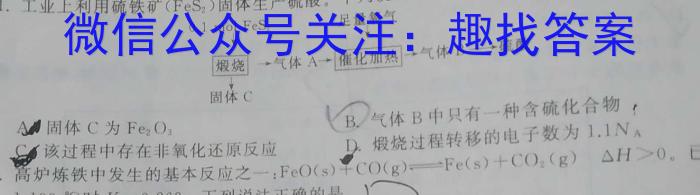 工业上利用硫铁矿(FeS₂)固体生产硫酸。
微信公众号关注：趣找答案
煅烧 气体 A 催化加热 气体
固体 C
A. 固体 C 为 Fe₂O₃
B. 气体 B 中只有一种含硫化合物
C. 该过程中存在非氧化还原反应
D. 煅烧过程转移的电子数为 1.1N_A
高炉炼铁中发生的基本反应之一:FeO(s)+CO(g)⇌Fe(s)+CO₂(g) ΔH>0。